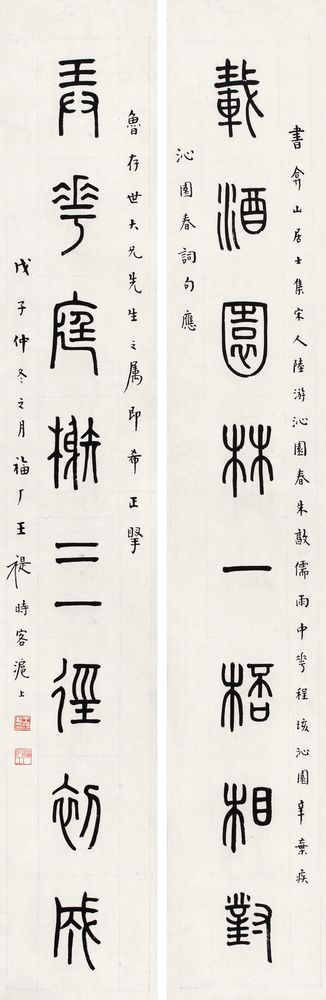 書弇山居士集宋人陸游沁園春朱敦儒雨中花程垓沁園辛棄疾
載酒園林一桮相對
沁園春詞句應
魯存世大兄先生之属即希正擥
弄花庭榭三徑初成
戊子仲冬之月福厂王禔時客滬上